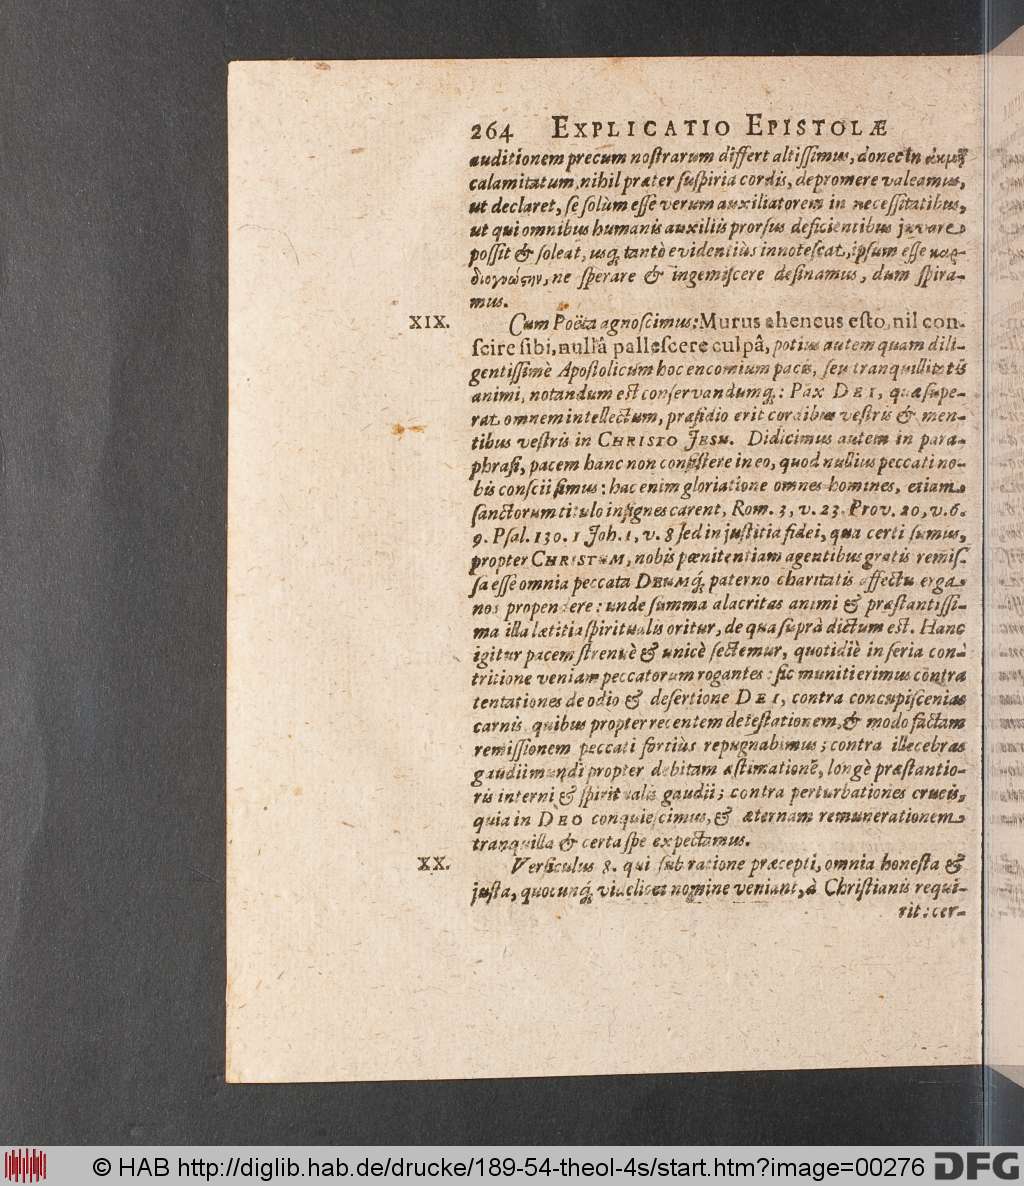 264 EXPLICATIO EPISTOLÆ
auditionem precum nostrarum differt altissimus, donec in ἀκμῇ
calamitatum, nihil præter suspiria cordis, depromere valeamus,
ut declaret, se solùm esse verum auxiliatorem in necessitatibus,
ut qui omnibus humanis auxiliis prorsus deficientibus juvare
possit & soleat, usq; tantò evidentiùs innotescat, ipsum esse καρ-
διογνώςην, ne sperare & ingemiscere desinamus, dum spira-
mus.
XIX. Cum Poëta agnoscimus: Murus aheneus esto, nil con-
scire sibi, nullâ pallescere culpâ, potius autem quam dili-
gentissimè Apostolicum hoc encomium pacis, seu tranquillitatis
animi, notandum est conservandumq;: Pax DEI, quæ supe-
rat omnem intellectum, præsidio erit cordibus vestris & men-
tibus vestris in CHRISTO JESU. Didicimus autem in para-
phrasi, pacem hanc non consistere in eo, quod nullius peccati no-
bis conscii simus: hac enim gloriatione omnes homines, etiam
sanctorum titulo insignes carent, Rom. 3, v. 23. Prov. 20, v. 6.
9. Psal. 130. 1 Joh. 1, v. 8 sed in justitia fidei, qua certi sumus,
propter CHRISTUM, nobis pœnitentiam agentibus gratis remis-
sa esse omnia peccata DEUMq; paterno charitatis affectu erga
nos propendere: unde summa alacritas animi & præstantissi-
ma illa lætitia spiritualis oritur, de qua suprà dictum est. Hanc
igitur pacem strenuè & unicè sectemur, quotidiè in seria con-
tritione veniam peccatorum rogantes: sic muniti erimus contra
tentationes de odio & desertione DEI, contra concupiscenias
carnis quibus propter recentem detestationem, & modo factam
remissionem peccati fortiùs repugnabimus; contra illecebras
gaudii mundi propter debitam æstimationē, longè præstantio-
ris interni & spiritualis gaudii; contra perturbationes crucis,
quia in DEO conquiescimus, & æternam remunerationem
tranquilla & certa spe expectamus.
XX. Versiculus 8. qui sub ratione præcepti, omnia honesta &
justa, quocunq; videlicet nomine veniant, à Christianis requi-
rit: cer-
© HAB http://diglib.hab.de/drucke/189-54-theol-4s/start.htm?image=00276 DFG